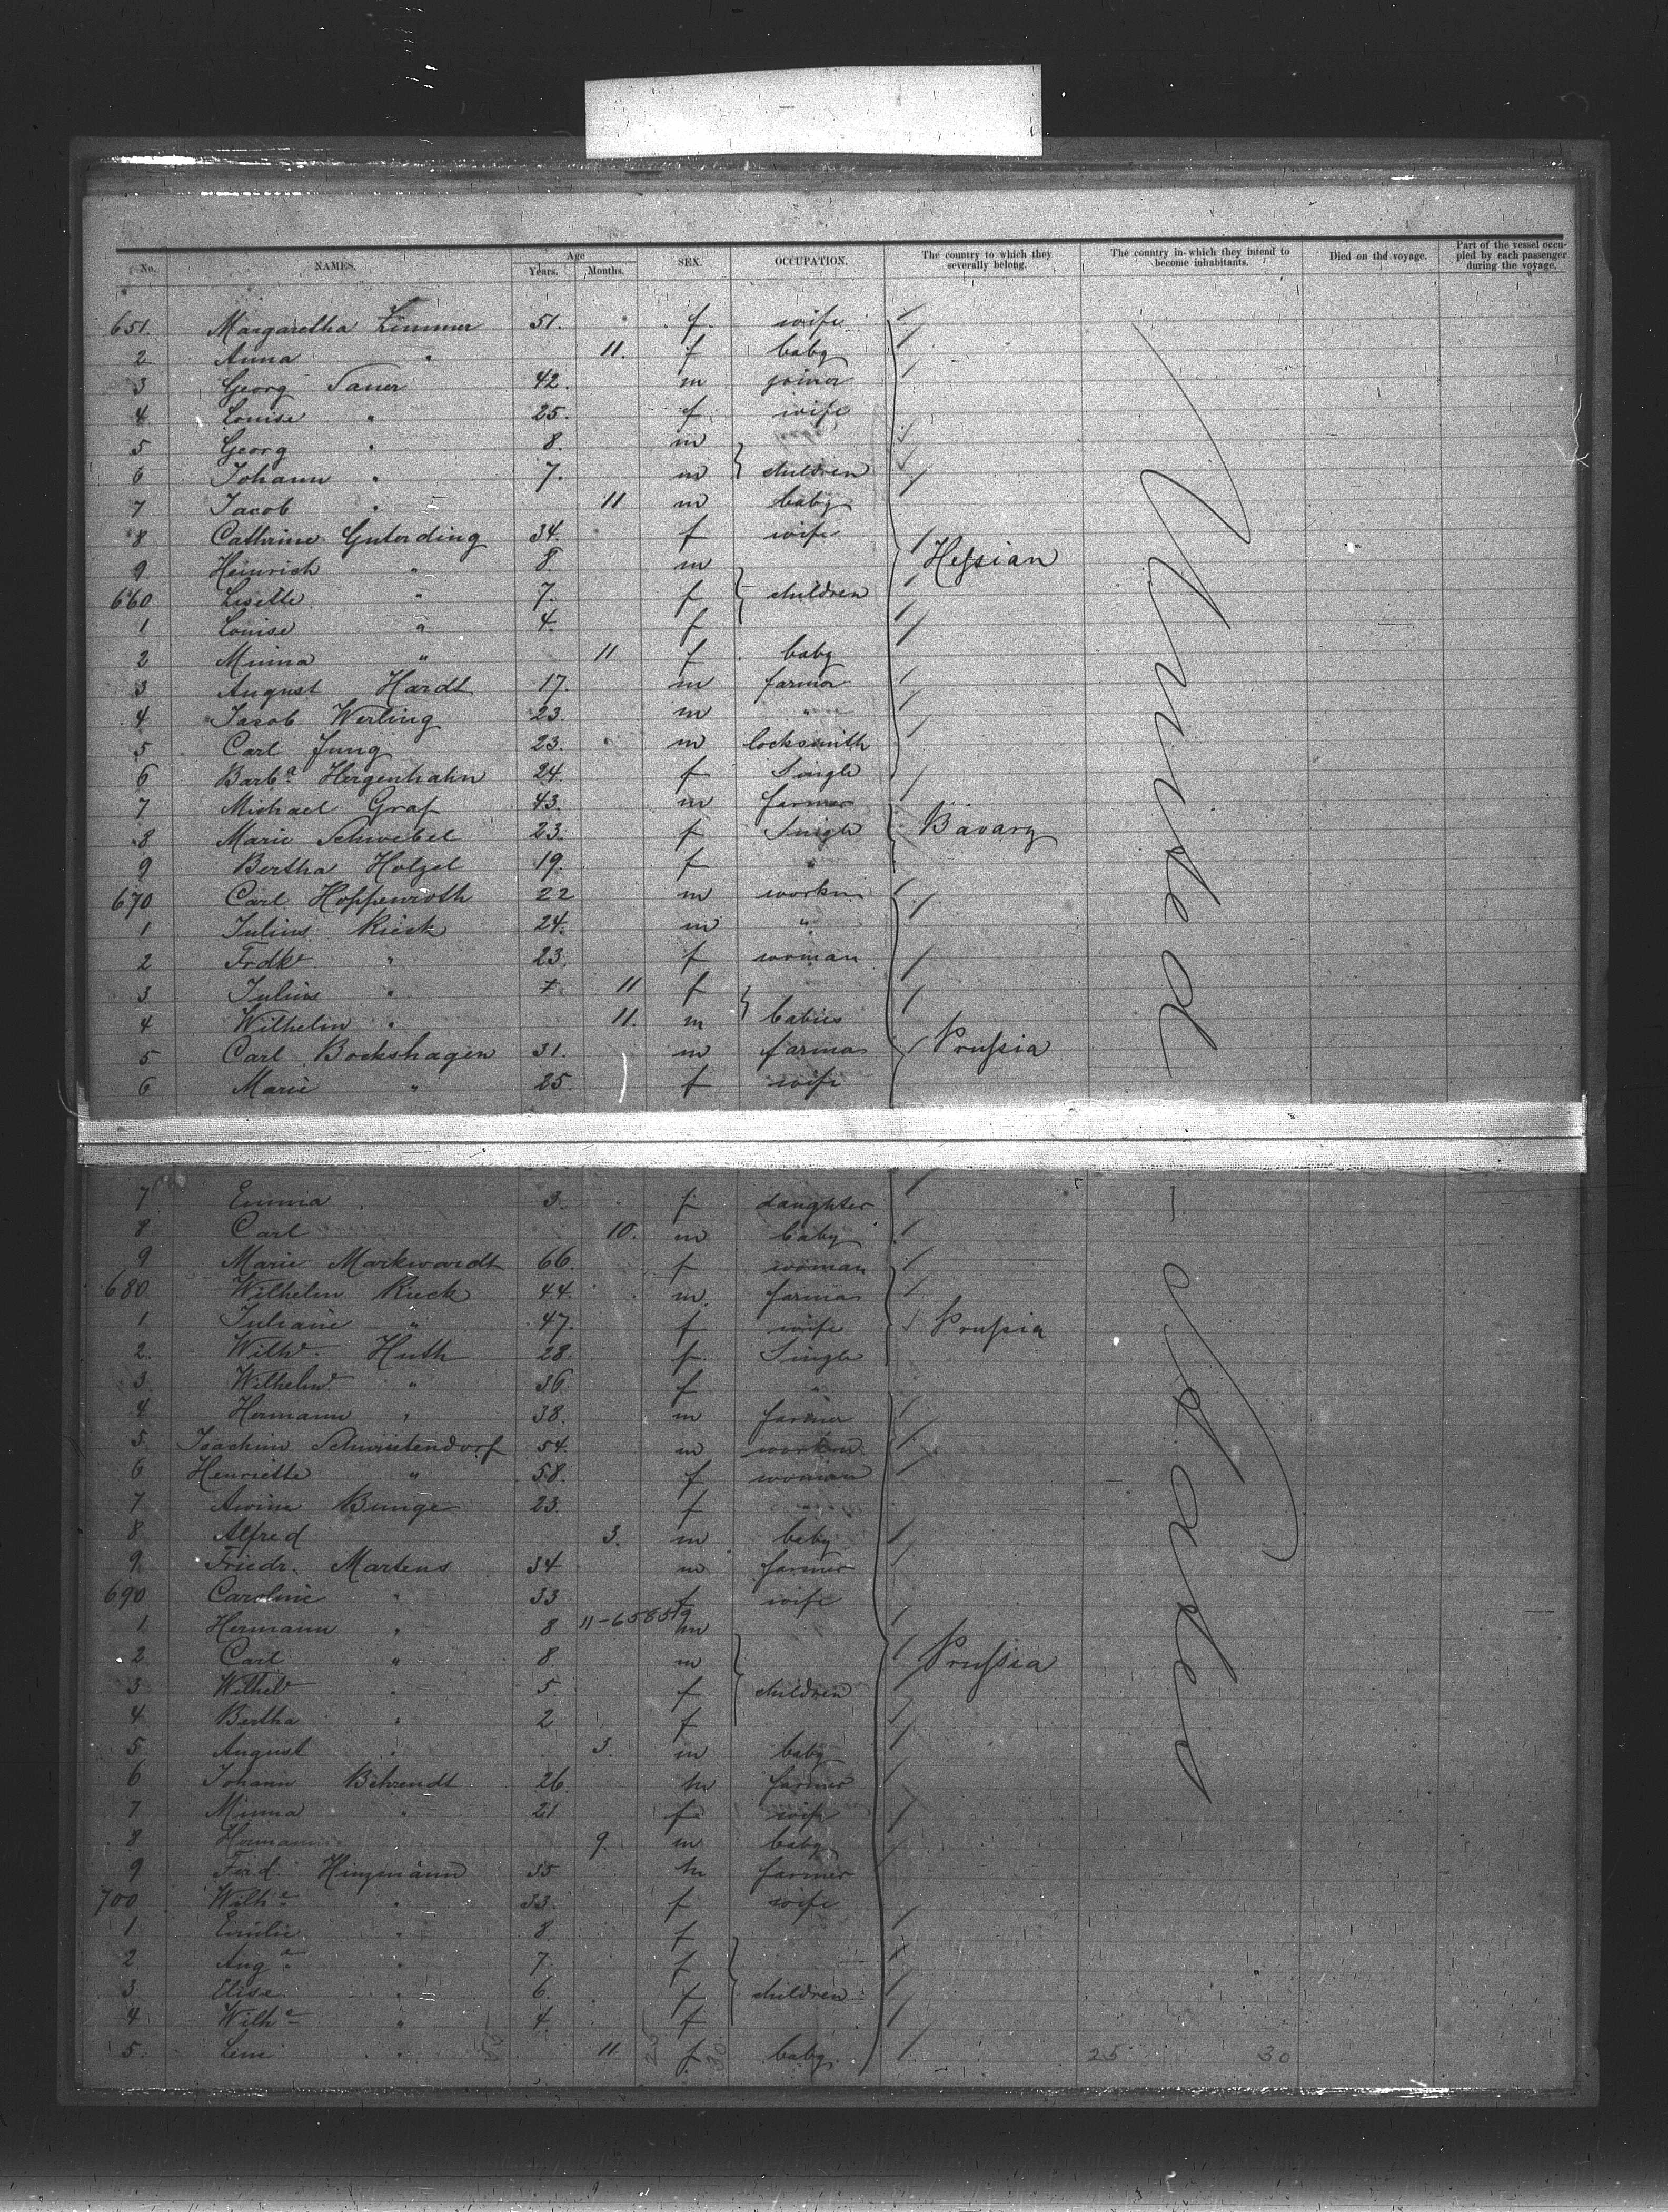 No. NAMES. Age Years. Months. SEX. OCCUPATION. The country to which they severally belong. The country in which they intend to become inhabitants. Died on the voyage. Part of the vessel occupied by each passenger during the voyage.
651. Margaretha Zimmer 51. f. wife
2 Anna " 11. f baby
3 Georg Sauer 42. m joiner
4 Louise " 25. f wife
5 Georg " 8. m
6 Johann " 7. m children
7 Jacob " 11 m baby
8 Cathrine Guterding 34. f wife
9 Heinrich " 8. m Hessian
660 Lisette " 7. f children
1 Louise " 4. f
2 Minna " 11 f baby
3 August Hardt 17. m farmer
4 Jacob Werling 23. m "
5 Carl Jung 23. m locksmith
6 Barba. Hergenhahn 24. f Single
7 Michael Graf 43. m farmer
8 Marie Schwebel 23. f Single Bavary
9 Bertha Holzel 19. f "
670 Carl Hoppenroth 22 m workm
1 Julius Rieck 24. m "
2 Frdke " 23. f woman
3 Julius " 11 f
4 Wilhelm " 11. m babies
5 Carl Bockshagen 31. m farmer Prussia
6 Marie " 25. f wife
7 Emma 3. f daughter
8 Carl 10. m baby
9 Marie Markwardt 66. f woman
680 Wilhelm Rieck 44. m farmer
1 Juliane " 47. f wife Prussia
2. Wilhe Huth 28. f. Single
3 Wilhelme " 36 f "
4 Hermann " 38. m farmer
5. Joachim Schwietendorf 54. m workm
6 Henriette " 58. f woman
7 Bunge 23. f
8 Alfred 3. m beby
9 Friedr. Martens 34 m farmer
690 Caroline " 33 f wife
1. Hermann " 8 11-658519 m
2 Carl " 8. m Prussia
3 Wilhele " 5. f children
4 Bertha " 2 f
5. August " 3. m baby
6 Johann Behrendt 26. m farmer
7 Minna " 21 f wife
8 Hermann 9. m baby
9 Ferd. Hinzmann 35 m farmer
700 Wilhe " 33. f wife
1 Emilie " 8. f
2 Auge " 7. f
3 Elise " 6. f children
4 Wilhe " 4. f
5. Leni " 11 f baby. 25 30